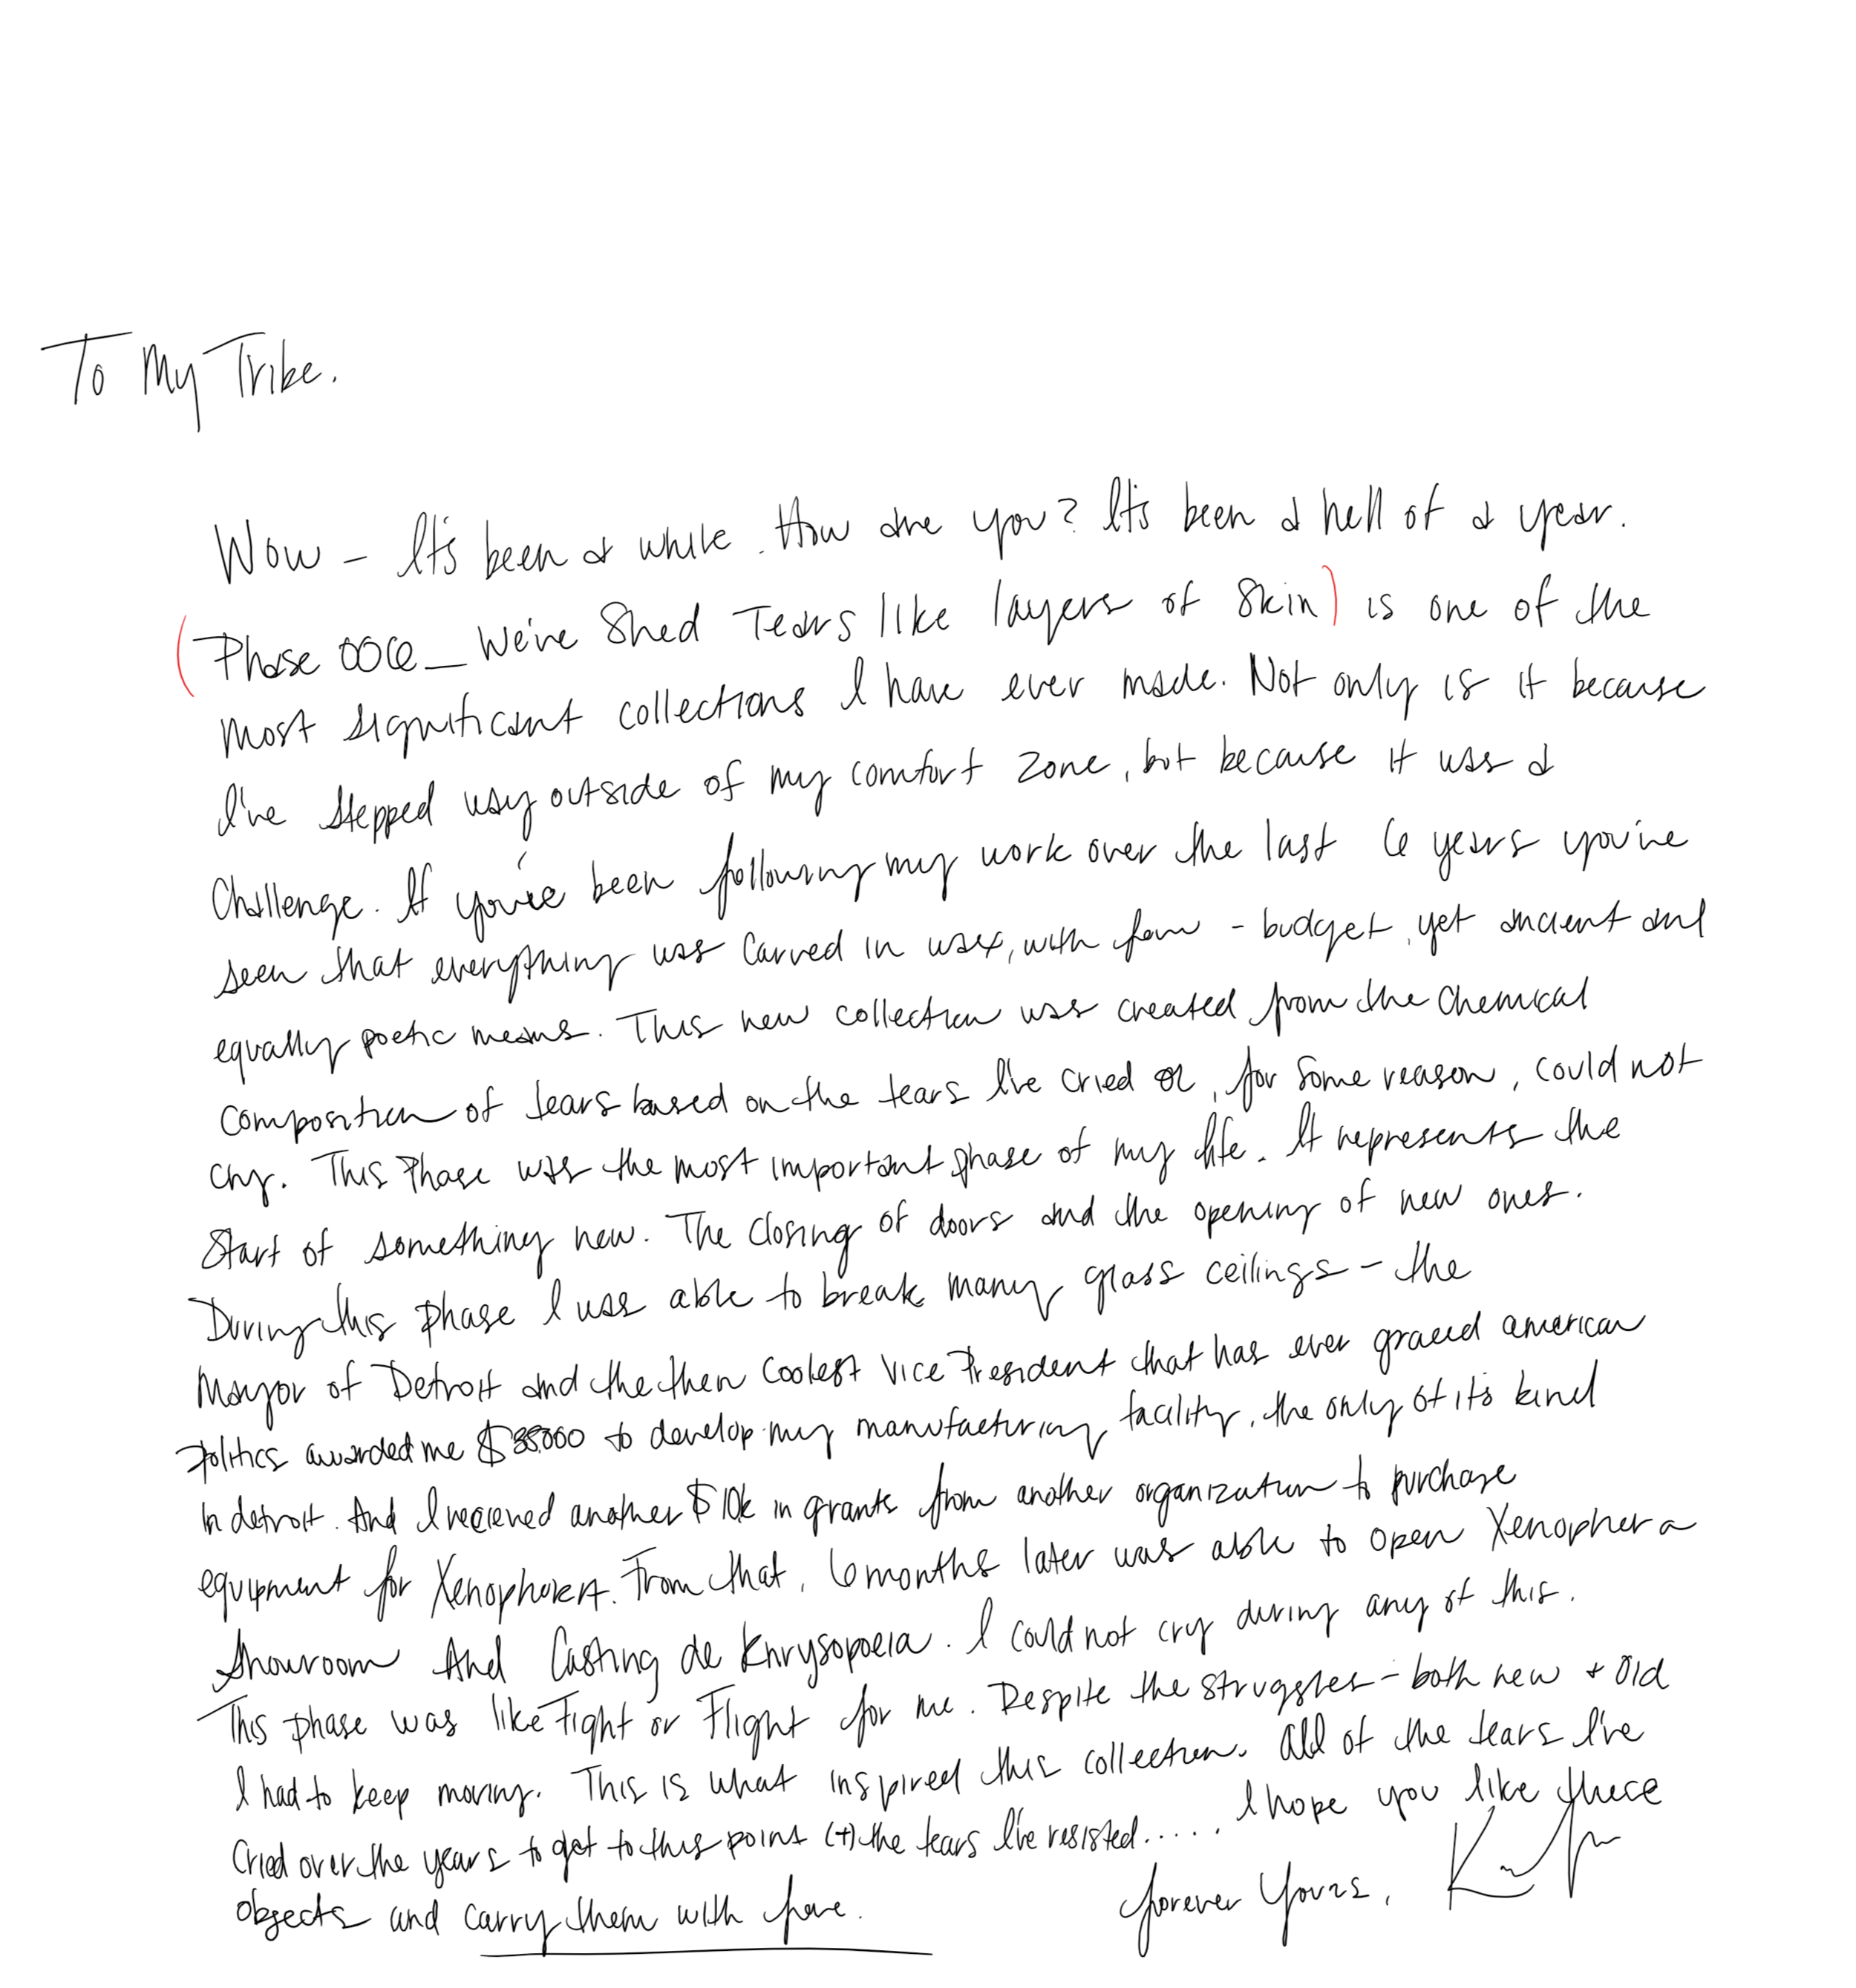 To My Tribe.
Wow - It's been a while. How are you? It's been a hell of a year.
(Phase 006_ We've Shed Tears like layers of Skin) is one of the
most significant collections I have ever made. Not only is it because
I've stepped way outside of my comfort zone, but because it was a
Challenge. If you've been following my work over the last 6 years you've
seen that everything was carved in wax, with few - budget, yet ancient and
equally poetic means. This new collection was created from the chemical
composition of tears based on the tears I've cried or, for some reason, could not
cry. This Phase was the most important phase of my life. It represents the
Start of something new. The closing of doors and the opening of new ones.
During this phase I was able to break many glass ceilings - the
Mayor of Detroit and the then Coolest Vice President that has ever graced american
Politics awarded me $35000 to develop my manufacturing facility, the only of it's kind
in detroit. And I recieved another $10k in grants from another organization to purchase
equipment for Xenophora. From that, 6 months later was able to open Xenophera
Showroom And Casting de Khrysopoeia. I could not cry during any of this.
This phase was like Fight or Flight for me. Despite the struggles - both new + old
I had to keep moving. This is what inspired this collection. All of the tears I've
Cried over the years to get to this point (+) the tears I've resisted..... I hope you like these
objects and carry them with love.
forever Yours,